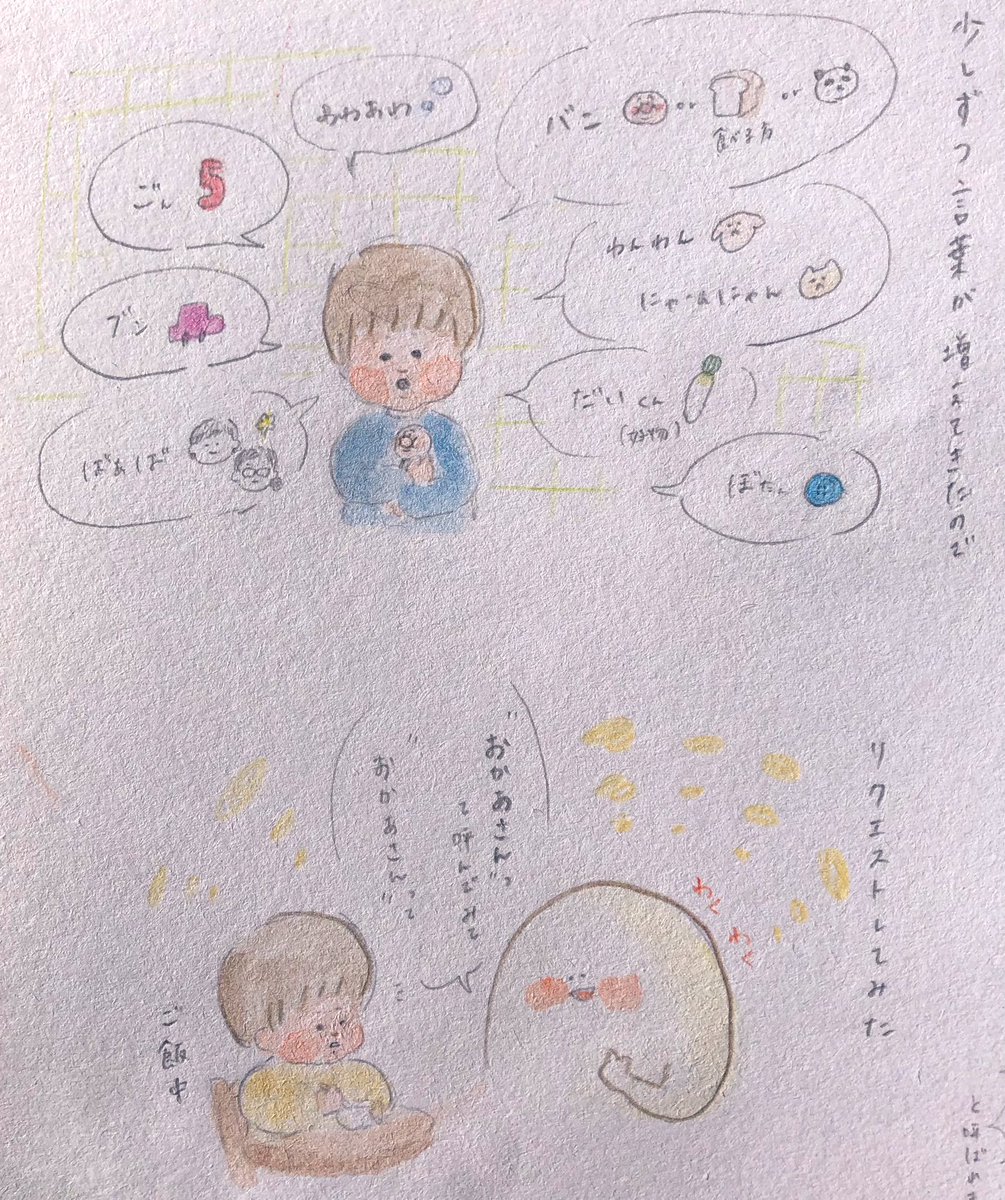 少しずつ言葉が増えてきたので
パン or or
食べる方
あわあわ
ごん 5
わんわん
にゃーんにゃん
ブン
だいくん
(好物)
ばぁば
ぼたん
リクエストしてみた
"おかあさん"っ
て呼んでみて
"おかあさん"って
わく
わく
ご飯中